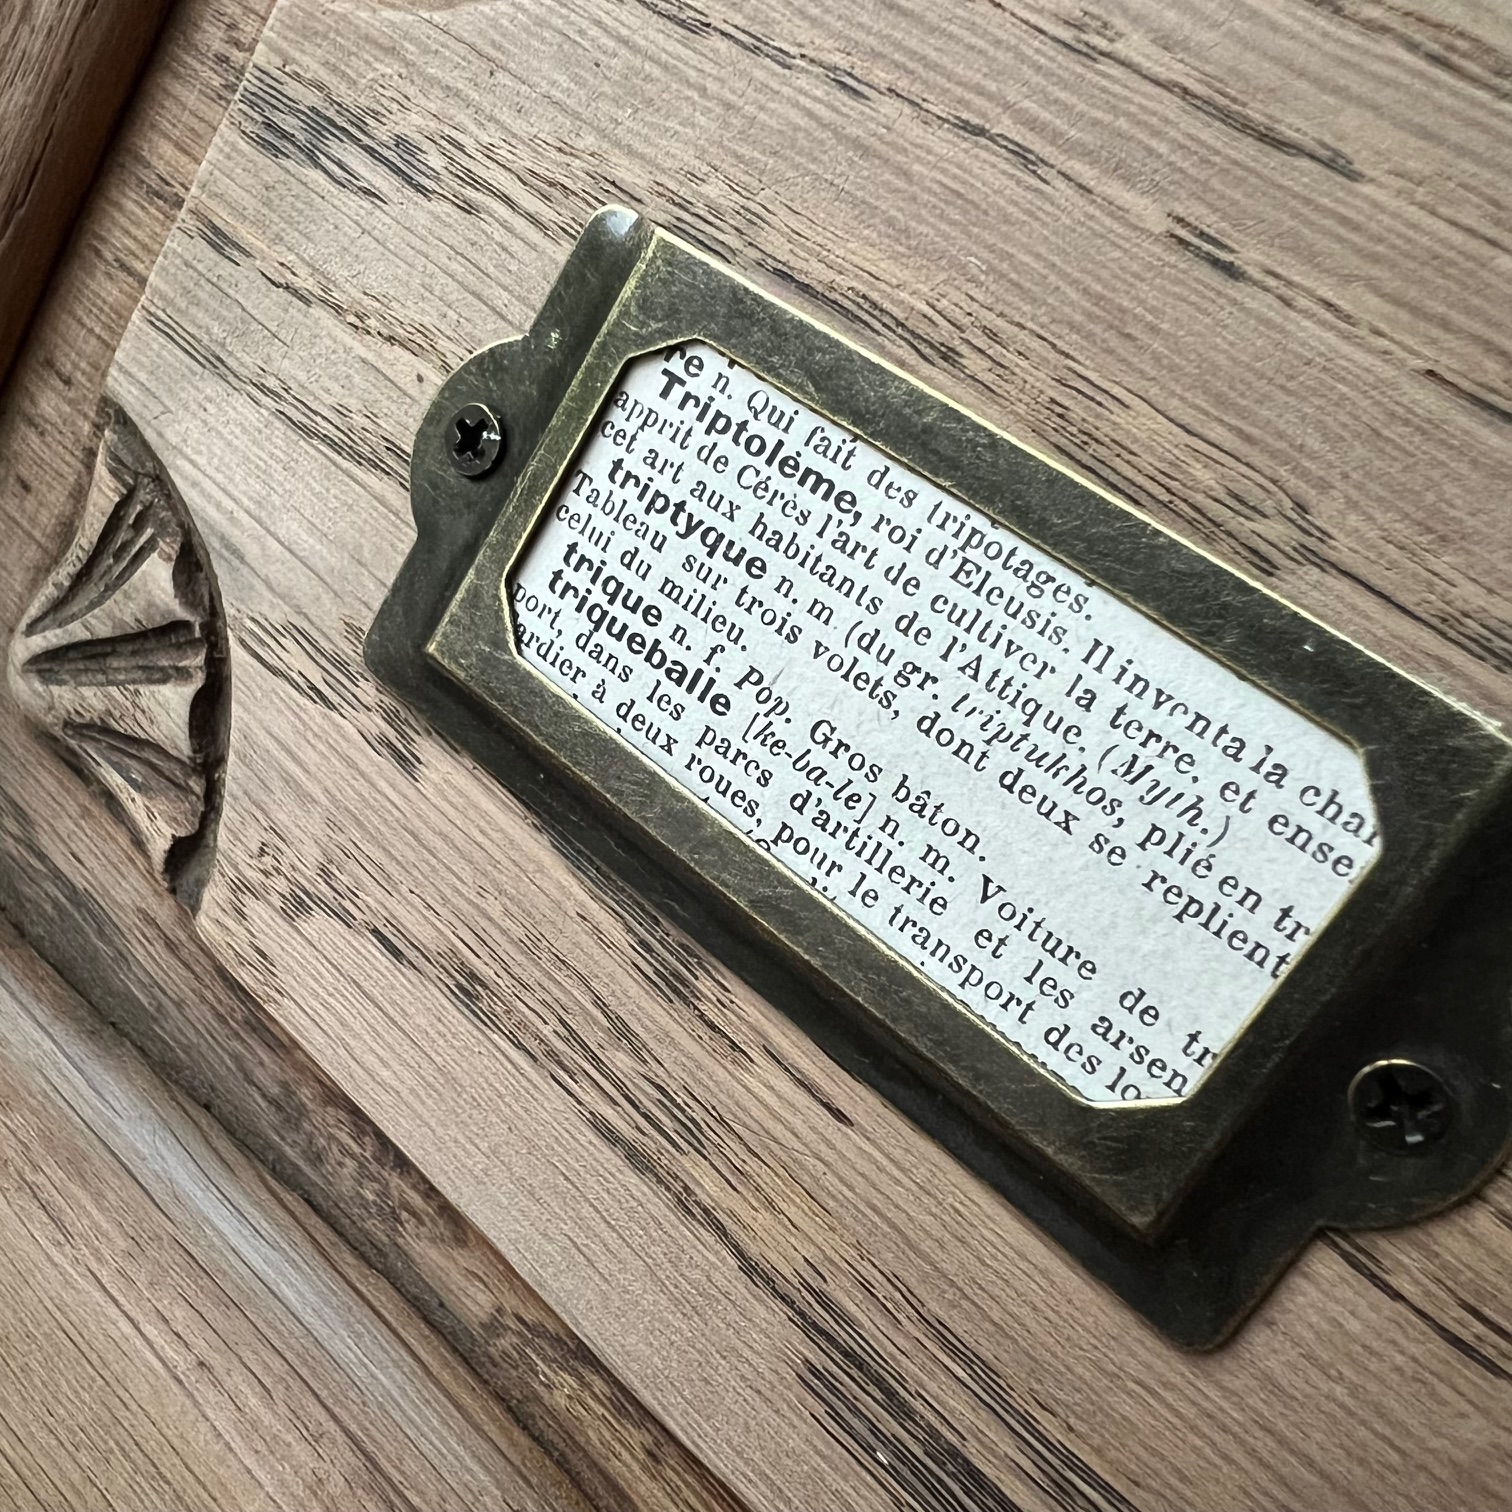 re n. Qui fait des tripotages.
Triptolème, roi d'Eleusis. Il inventa la char
apprit de Cérès l'art de cultiver la terre, et ense
cet art aux habitants de l'Attique. (Myth.)
triptyque n. m (du gr. triptukhos, plié en tr
Tableau sur trois volets, dont deux se replient
celui du milieu.
trique n. f. Pop. Gros bâton.
triqueballe [ke-ba-le] n. m. Voiture de tr
port, dans les parcs d'artillerie et les arsen
ardier à deux roues, pour le transport des lo